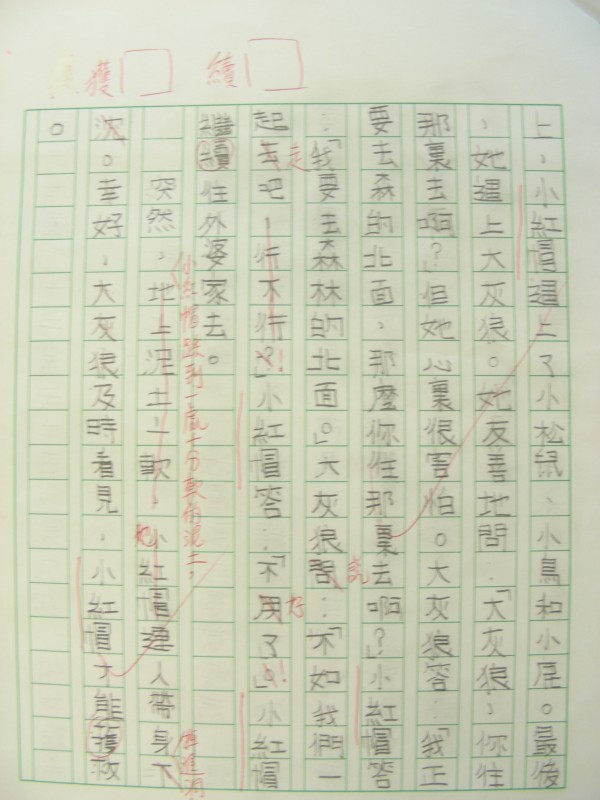 續
獲
上，小紅帽遇上了小松鼠、小鳥和小屋。最後
，她遇上大灰狼。她友善地問：「大灰狼，你往
那裏去啊？」但她心裏很害怕。大灰狼答：「我正
要去森的北面，那麼你往那裏去啊？」小紅帽答
：「我要去森林的北面。」大灰狼問：「不如我們一
說
起去吧，行不行？」小紅帽答：「不用了。」小紅帽
走
！
好
！
繼續往外婆家去。
小紅帽踩到一處十分軟的泥土，
突然，地上泥土一軟，小紅帽連人帶身下
她
掉進洞
沈。幸好，大灰狼及時看見，小紅帽才能獲救
。